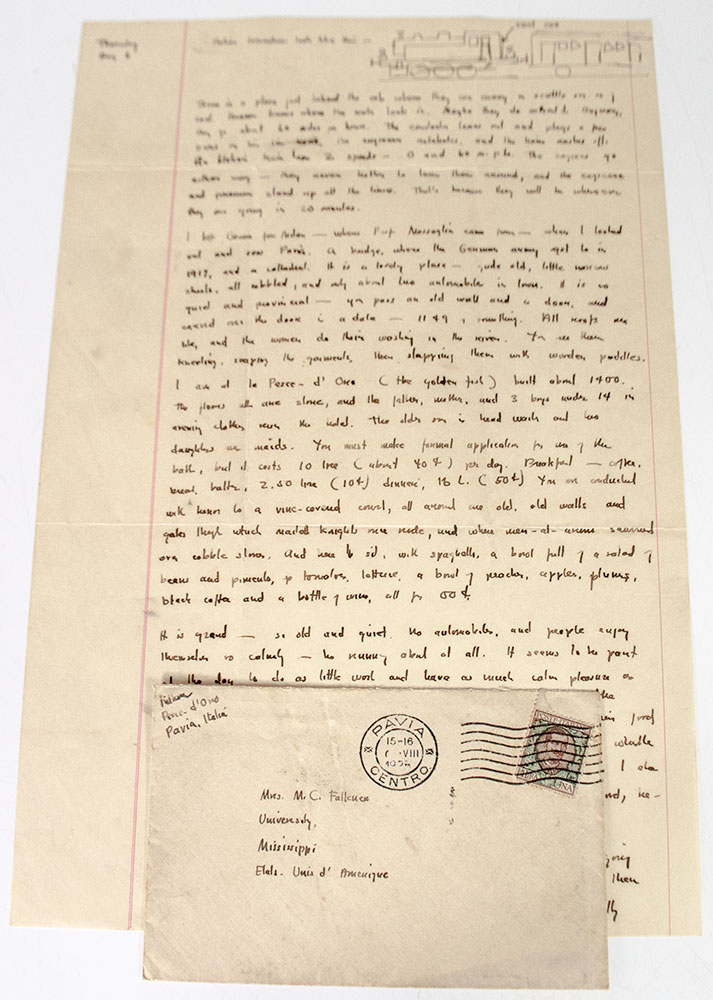 Thursday
Aug 6
Italian locomotives look like this —
There is a place just behind the cab where they can carry a scuttle or so of
coal. Heaven knows where the water tank is. Maybe they do without it. Anyway,
they go about 60 miles an hour. The conductor leans out and plays a few
on his tin horn, the engineer whistles, and the train rushes off.
The Italian train has 2 speeds — 0 and 60 m.p.h. The engines go
either way — they never bother to turn them around, and the engineer
and fireman stand up all the time. That's because they will be wherever
they are going in 20 minutes.
I left Genoa for Milan — where came from — when I looked
out and saw Pavia. A bridge, where the German army got to in
1917, and a cathedral. It is a lovely place — quite old, little narrow
streets, all cobbled, and only about two automobiles in town. It is so
quiet and provincial — you pass an old wall and a door, and
carved over the door is a date — 1149 or something. All roofs are
tile, and the women do their washing in the river. You see them
kneeling, soaping the garments, then slapping them with wooden paddles.
I am at la Pesce-d'Oro (the golden fish) built about 1400.
The floors all are stone, and the father, mother, and 3 boys under 14 in
evening clothes run the hotel. The older son is head waiter and two
daughters are maids. You must make formal application for use of the
bath, but it costs 10 lire (about 40¢) per day. Breakfast — coffee,
bread, butter, 2.50 lire (10¢) dinner, 16 L. (50¢) You are conducted
with honor to a vine-covered court, all around are old, old walls and
gates through which mailed knights once rode, and where men-at-arms swarmed
over cobble stones. And here I sit, with spaghetti, a bowl full of a salad of
beans and pimento, tomatoes, lettuce, a bowl of peaches, apples, plums,
black coffee and a bottle of wine, all for 50¢.
It is grand — so old and quiet. No automobiles, and people enjoy
themselves so calmly — no running about at all. It seems to be part
of the day to do as little work and have as much calm pleasure as
the
whistle
I
going
then
Falkner
Pesce-d'Oro
Pavia, Italia
PAVIA
15-16
VIII
CENTRO
Mrs. M. C. Falkner
University,
Mississippi
Etats-Unis d'Amerique